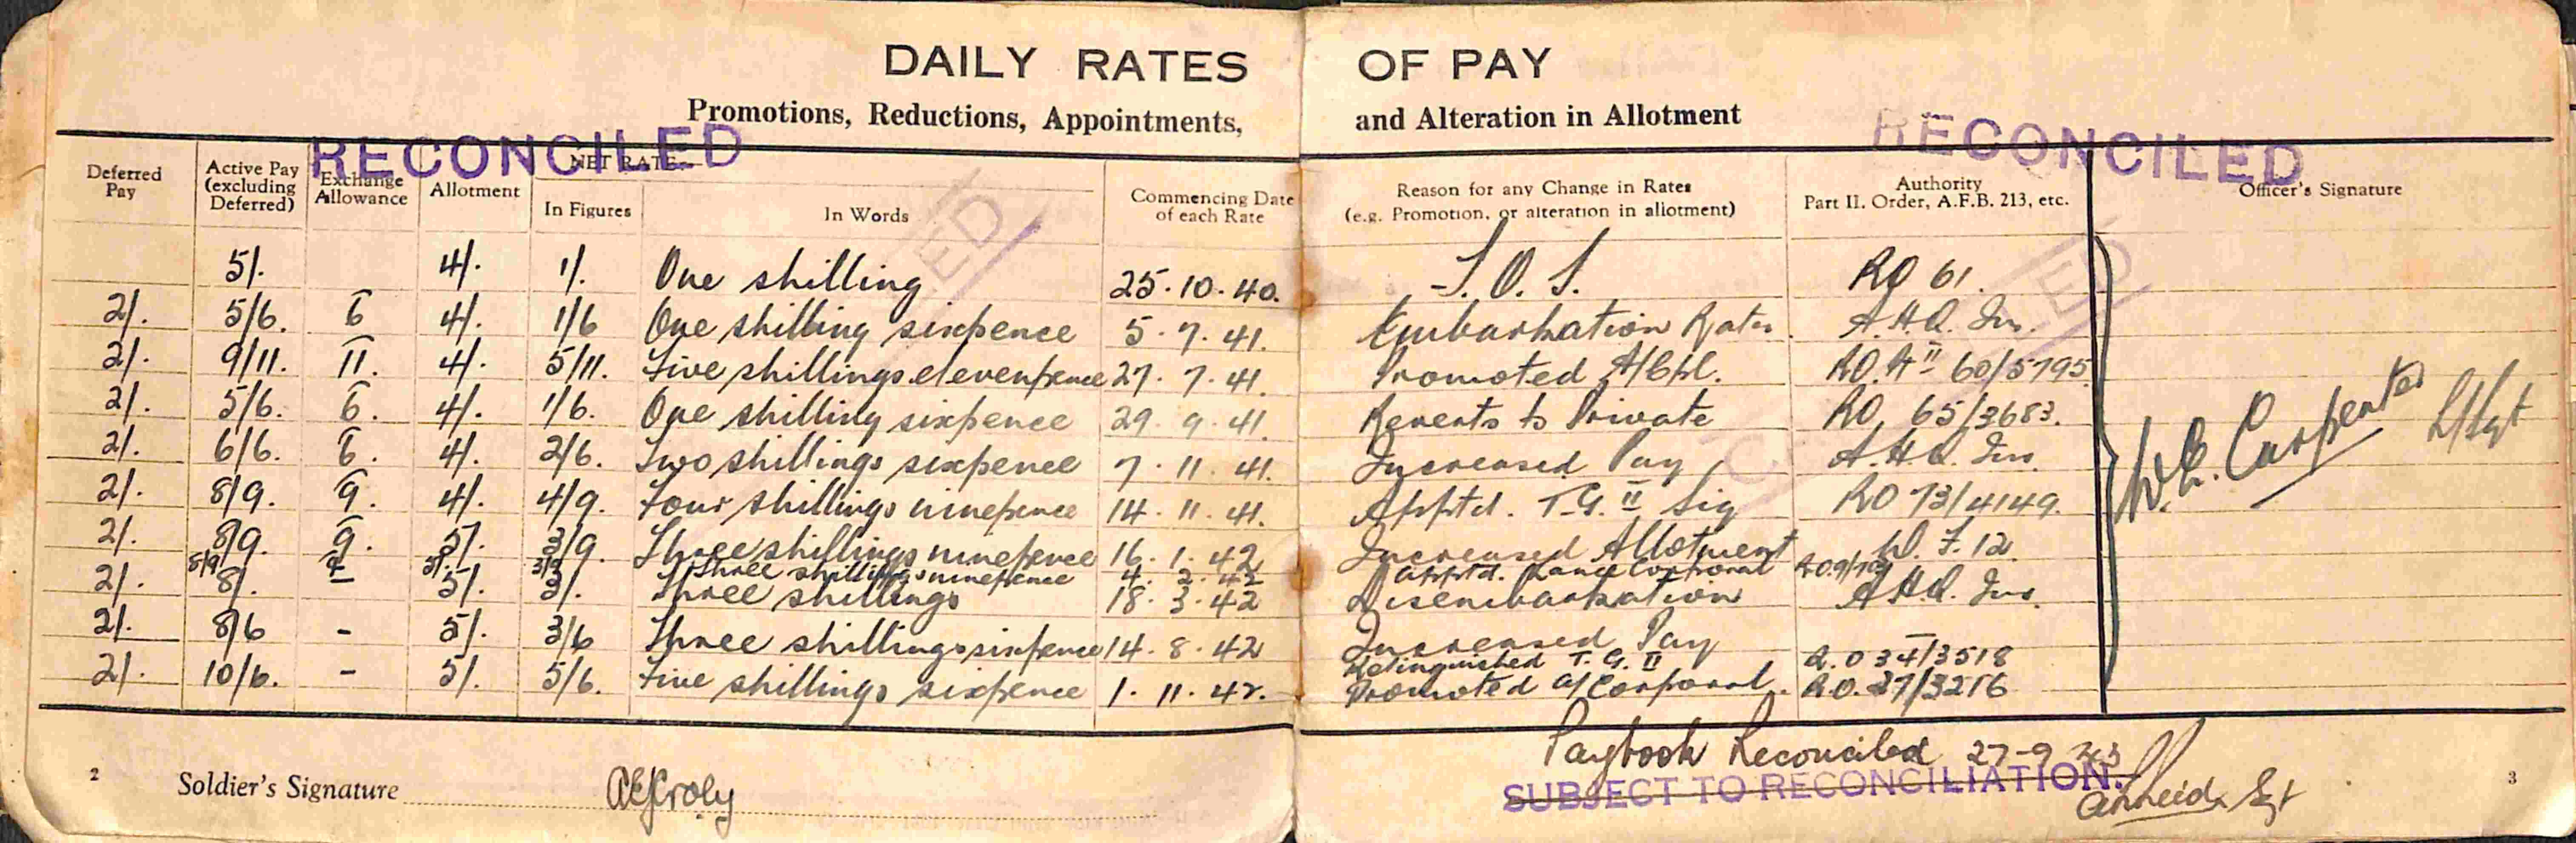 DAILY RATES OF PAY
Promotions, Reductions, Appointments, and Alteration in Allotment
RECONCILED RECONCILED
Deferred Pay
Active Pay (excluding Deferred)
Exchange Allowance
Allotment
NET RATE
In Figures
In Words
Commencing Date of each Rate
Reason for any Change in Rates (e.g. Promotion, or alteration in allotment)
Authority Part II. Order, A.F.B. 213, etc.
Officer's Signature
5/. 4/. 1/. One shilling 25.10.40. T.O.S. RO 61.
2/. 5/6. 6 4/. 1/6 One shilling sixpence 5.7.41. Embarkation Rates. A.H.Q. Ins.
2/. 9/11. 11. 4/. 5/11. Five shillings elevenpence 27.7.41. Promoted A/Cpl. RO. A II 60/5795
2/. 5/6. 6. 4/. 1/6. One shilling sixpence 29.9.41. Reverts to Private RO 65/3683.
2/. 6/6. 6. 4/. 2/6. Two shillings sixpence 7.11.41. Increased Pay A.H.Q. Ins.
2/. 8/9. 9. 4/. 4/9. Four shillings ninepence 14.11.41. Apptd. T.G. II Sig RO 73/4149.
2/. 8/9. 9. 5/. 3/9. Three shillings ninepence 16.1.42 Increased Allotment W.F.12
8/9 9 5/. 3/9 Three shillings ninepence 4.2.42 Apptd. Lance Corporal
2/. 8/. – 5/. 3/. Three shillings 18.3.42 Disembarkation A.H.Q. Ins.
2/. 8/6 - 5/. 3/6 Three shillings sixpence 14.8.42 Increased Pay
Relinquished T.G. II R.O 34/3518
2/. 10/6. - 5/. 5/6. Five shillings sixpence 1.11.42. Promoted A/Corporal. R.O. 37/3216
W.E. Carpenter L/Sgt
Paybook Reconciled 27-9-43
SUBJECT TO RECONCILIATION.
Sgt
2 Soldier's Signature
3